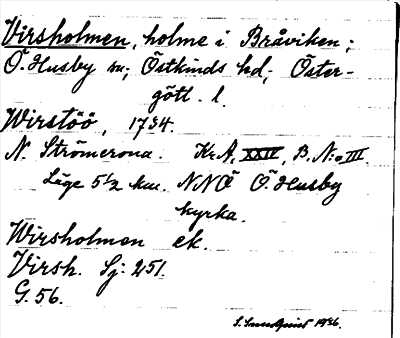 Virsholmen, holme i Bråviken;
Ö. Husby sn; Östkinds hd; Öster-
götl. l.
Wirstöö, 1734.
N. Strömcrona. Kr.A, XXIV, B. N:o III.
Läge 5 1/2 km. NNÖ Ö. Husby
kyrka.
Wirsholmen ek.
Virsh. Sj: 251.
G. 56.
S. Sundquist 1926.